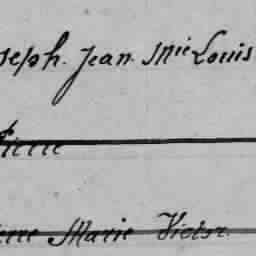 seph. Jean. Mie Louis
Pierre
erre Marie Victor.